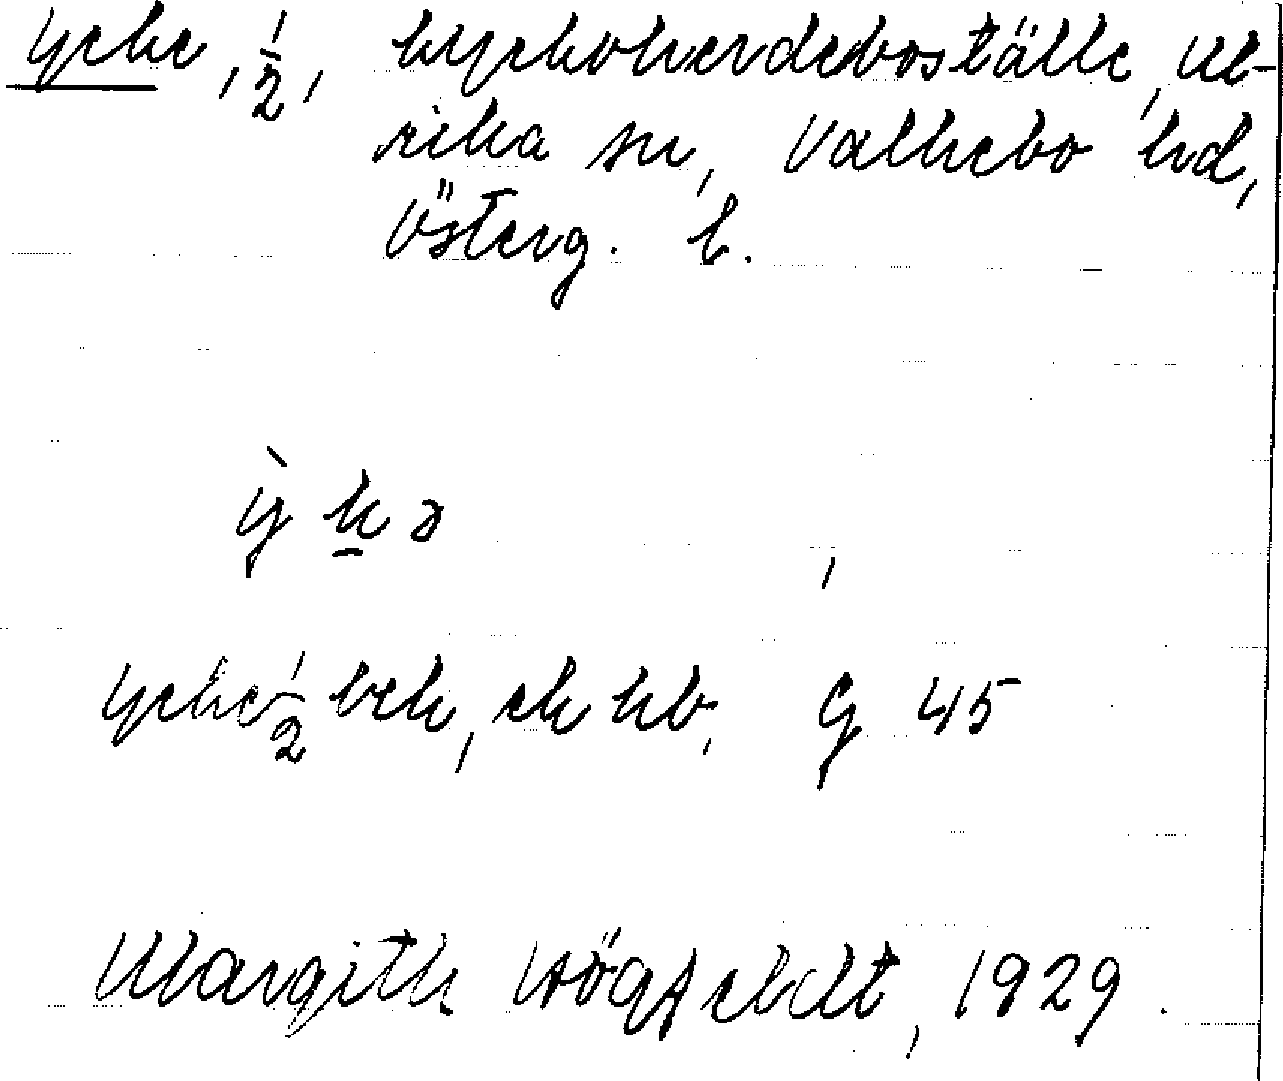 Ycke, 1/2, kyrkoherdeboställe, Ul-
rika sn, Valkebo hd,
Österg. l.
ỳkə
Ycke 1/2 bck, ckhb, G 45
Margith Högfeldt, 1929.